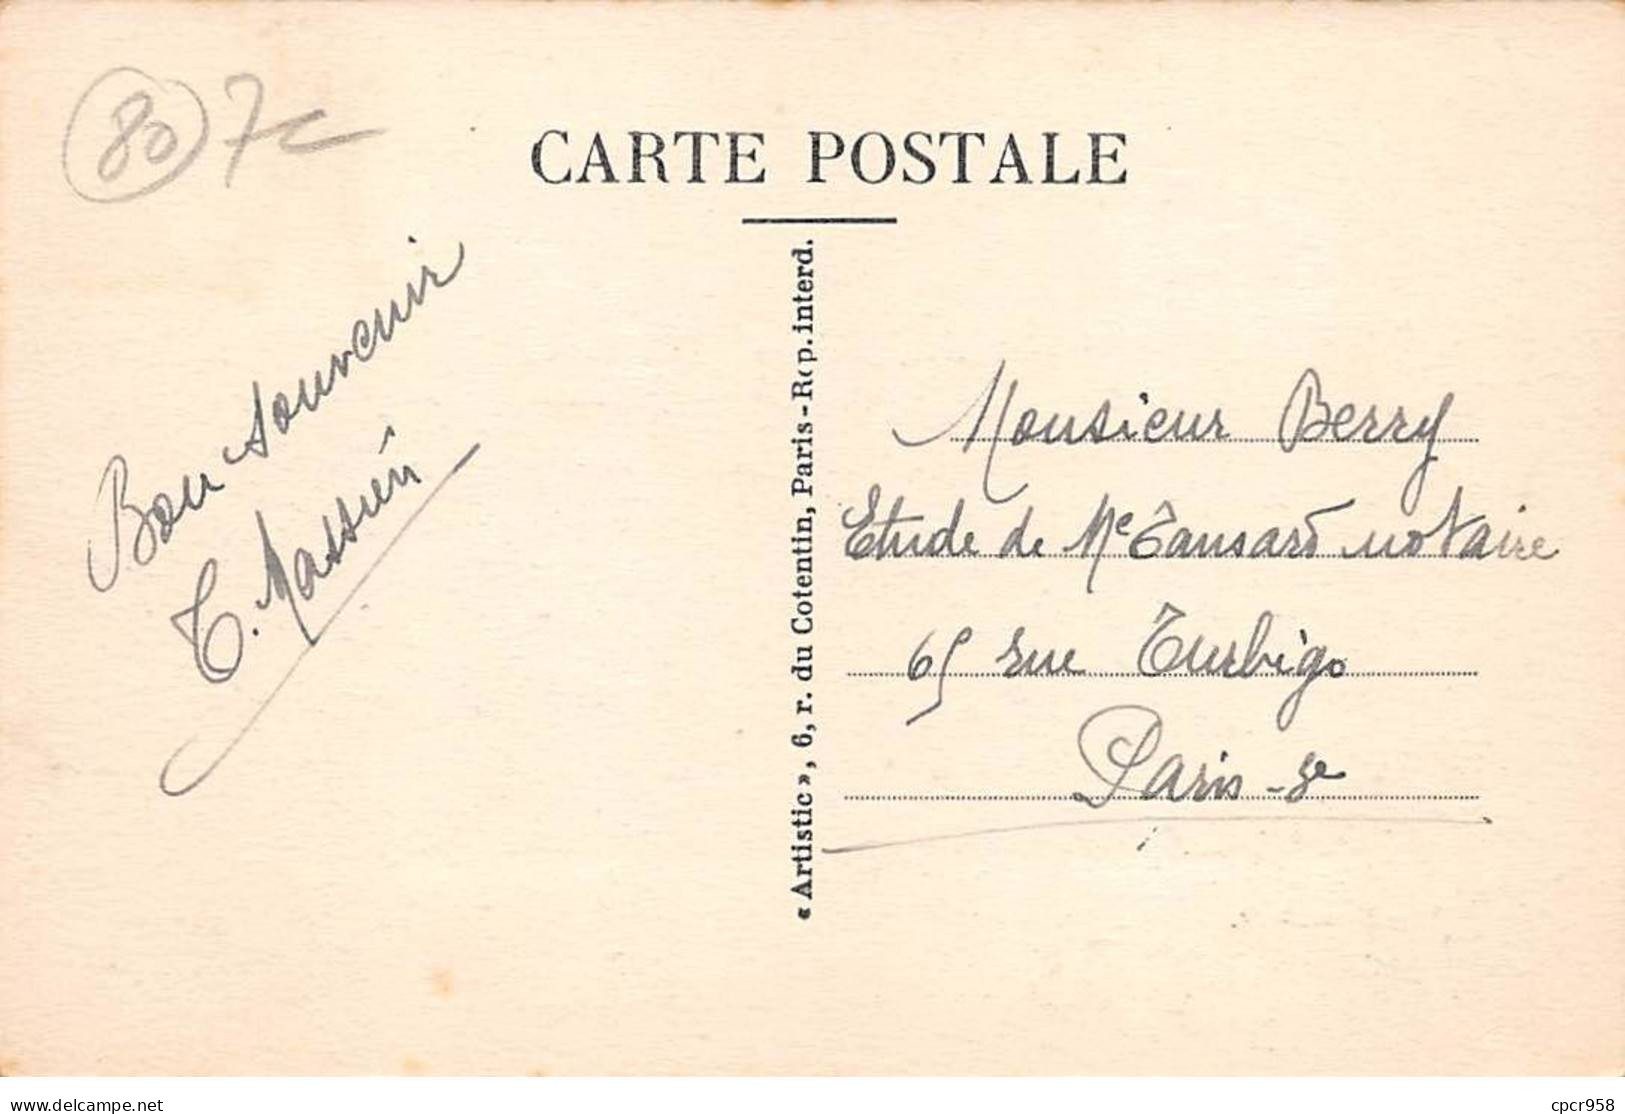 80 7c
CARTE POSTALE
Bon souvenir
« Artistic », 6, r. du Cotentin, Paris-Rep. interd.
Monsieur Berry
Etude de Me Tansard notaire
65 rue Turbigo
Paris - 3e
delcampe.net
cpcr958